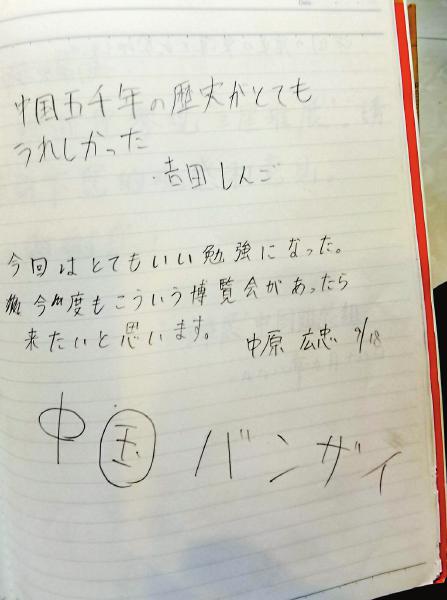 中国五千年の歴史がとても
うれしかった
・吉田しんご
今回はとてもいい勉強になった。
今度もこういう博覧会があったら
来たいと思います。 中原 広忠 9/18
中国 バンザイ